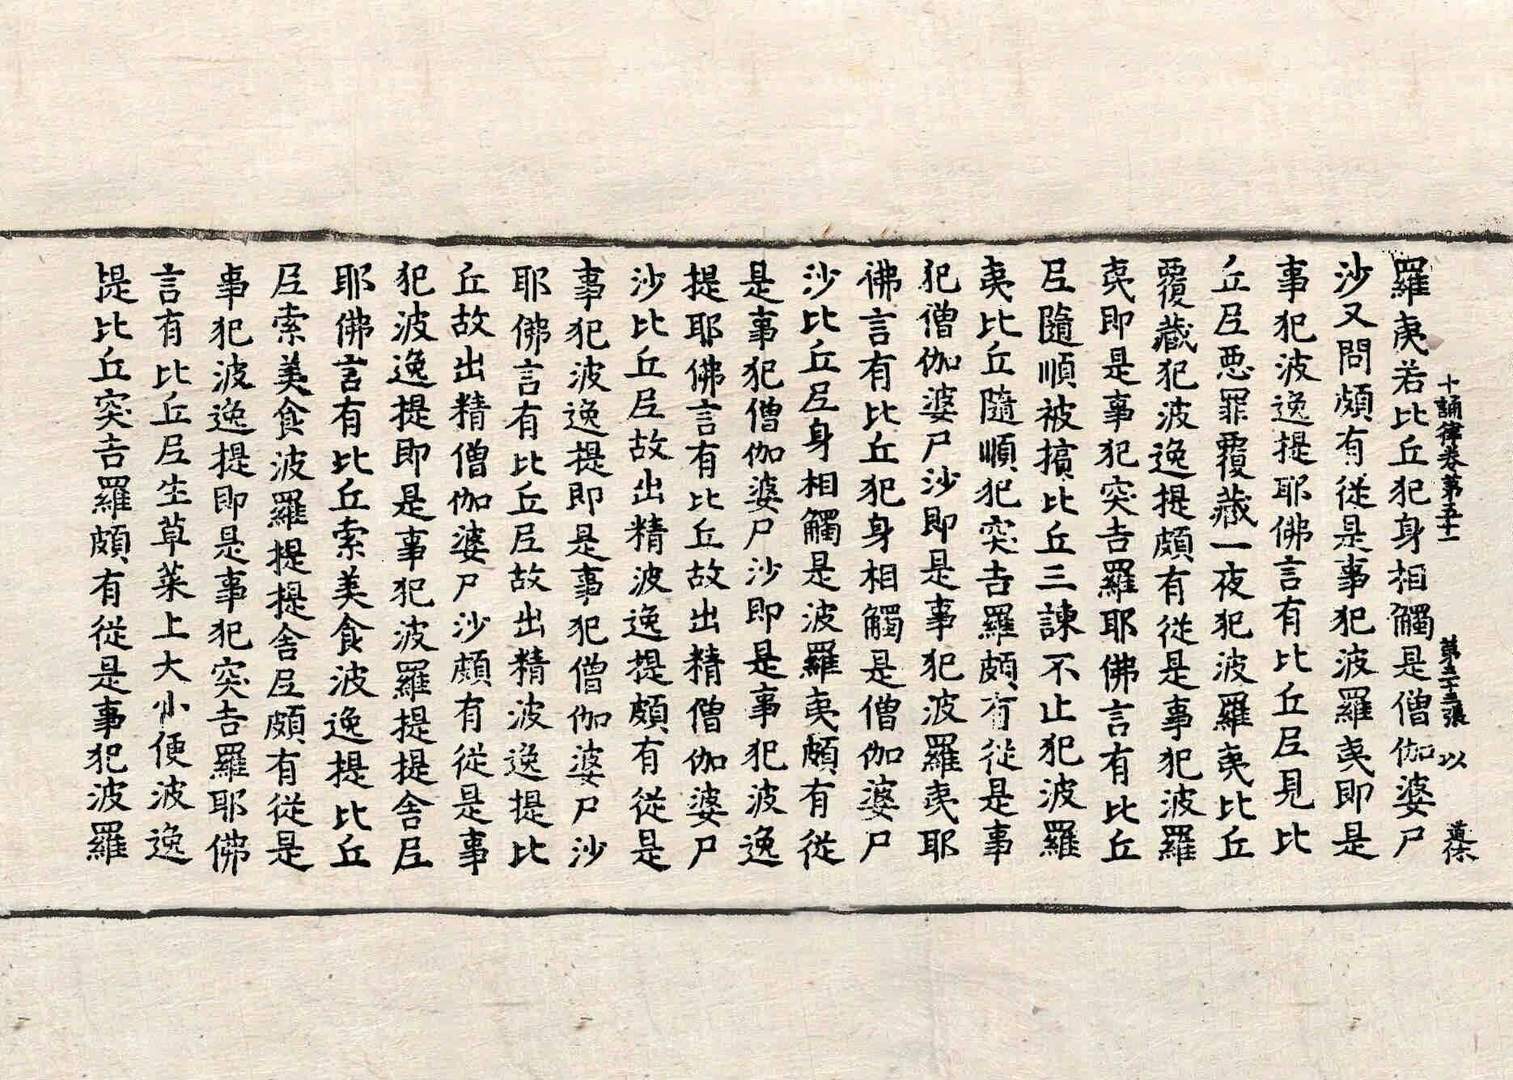 十誦律卷第五十一 第三十三張 以 道休
羅夷若比丘犯身相觸是僧伽婆尸
沙又問頗有從是事犯波羅夷即是
事犯波逸提耶佛言有比丘尼見比
丘尼惡罪覆藏一夜犯波羅夷比丘
覆藏犯波逸提頗有從是事犯波羅
夷即是事犯突吉羅耶佛言有比丘
尼隨順被擯比丘三諫不止犯波羅
夷比丘隨順犯突吉羅頗有從是事
犯僧伽婆尸沙即是事犯波羅夷耶
佛言有比丘犯身相觸是僧伽婆尸
沙比丘尼身相觸是波羅夷頗有從
是事犯僧伽婆尸沙即是事犯波逸
提耶佛言有比丘故出精僧伽婆尸
沙比丘尼故出精波逸提頗有從是
事犯波逸提即是事犯僧伽婆尸沙
耶佛言有比丘尼故出精波逸提比
丘故出精僧伽婆尸沙頗有從是事
犯波逸提即是事犯波羅提提舍尼
耶佛言有比丘索美食波逸提比丘
尼索美食波羅提提舍尼頗有從是
事犯波逸提即是事犯突吉羅耶佛
言有比丘尼生草菜上大小便波逸
提比丘突吉羅頗有從是事犯波羅